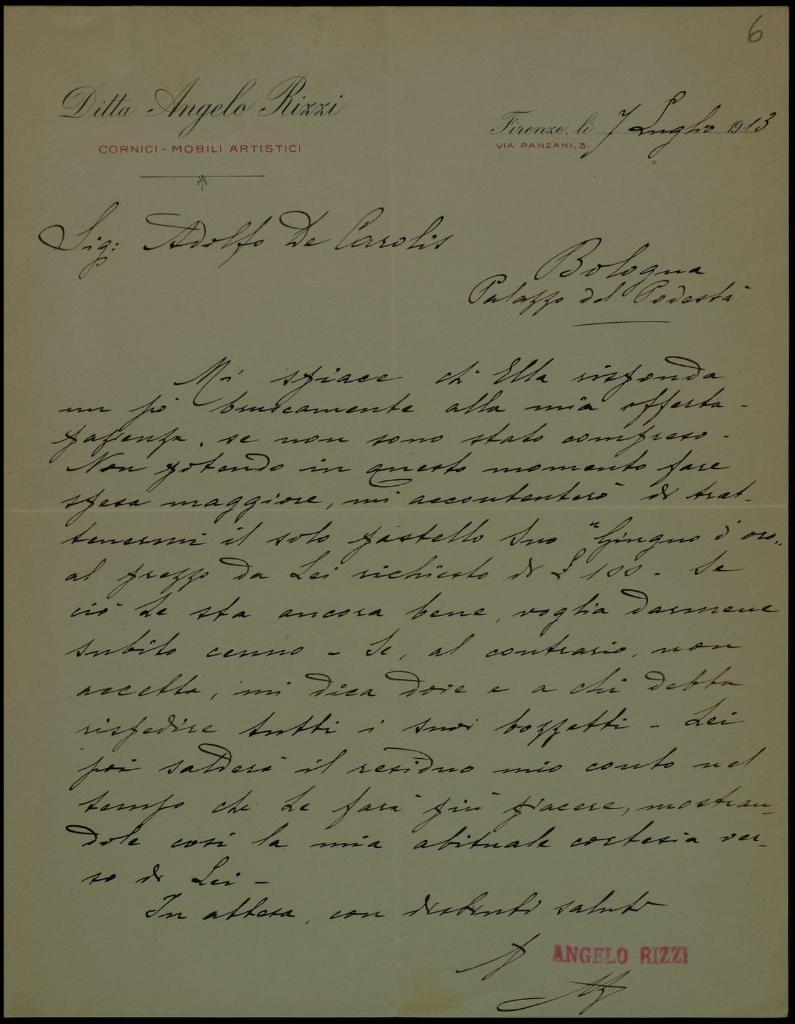 6
Ditta Angelo Rizzi
CORNICI - MOBILI ARTISTICI
Firenze, li 7 Luglio 1913
VIA PANZANI, 3.
Sig: Adolfo De Carolis
Bologna
Palazzo del Podestà
Mi spiace ch' Ella risponda
un pò bruscamente alla mia offerta-
, se non sono stato compreso -
Non potendo in questo momento fare
spesa maggiore, mi accontenterò di trat-
tenermi il solo pastello Suo "Giugno d'oro„
al prezzo da Lei richiesto di £ 100 - Se
ciò Le sta ancora bene, voglia darmene
subito cenno - Se, al contrario, non
accetta, mi dica dove e a chi debba
rispedire tutti i suoi bozzetti - Lei
poi salderà il residuo mio conto nel
tempo che Le farà più piacere, mostran-
dole così la mia abituale cortesia ver-
so di Lei -
In attesa, con distinti saluti
ANGELO RIZZI